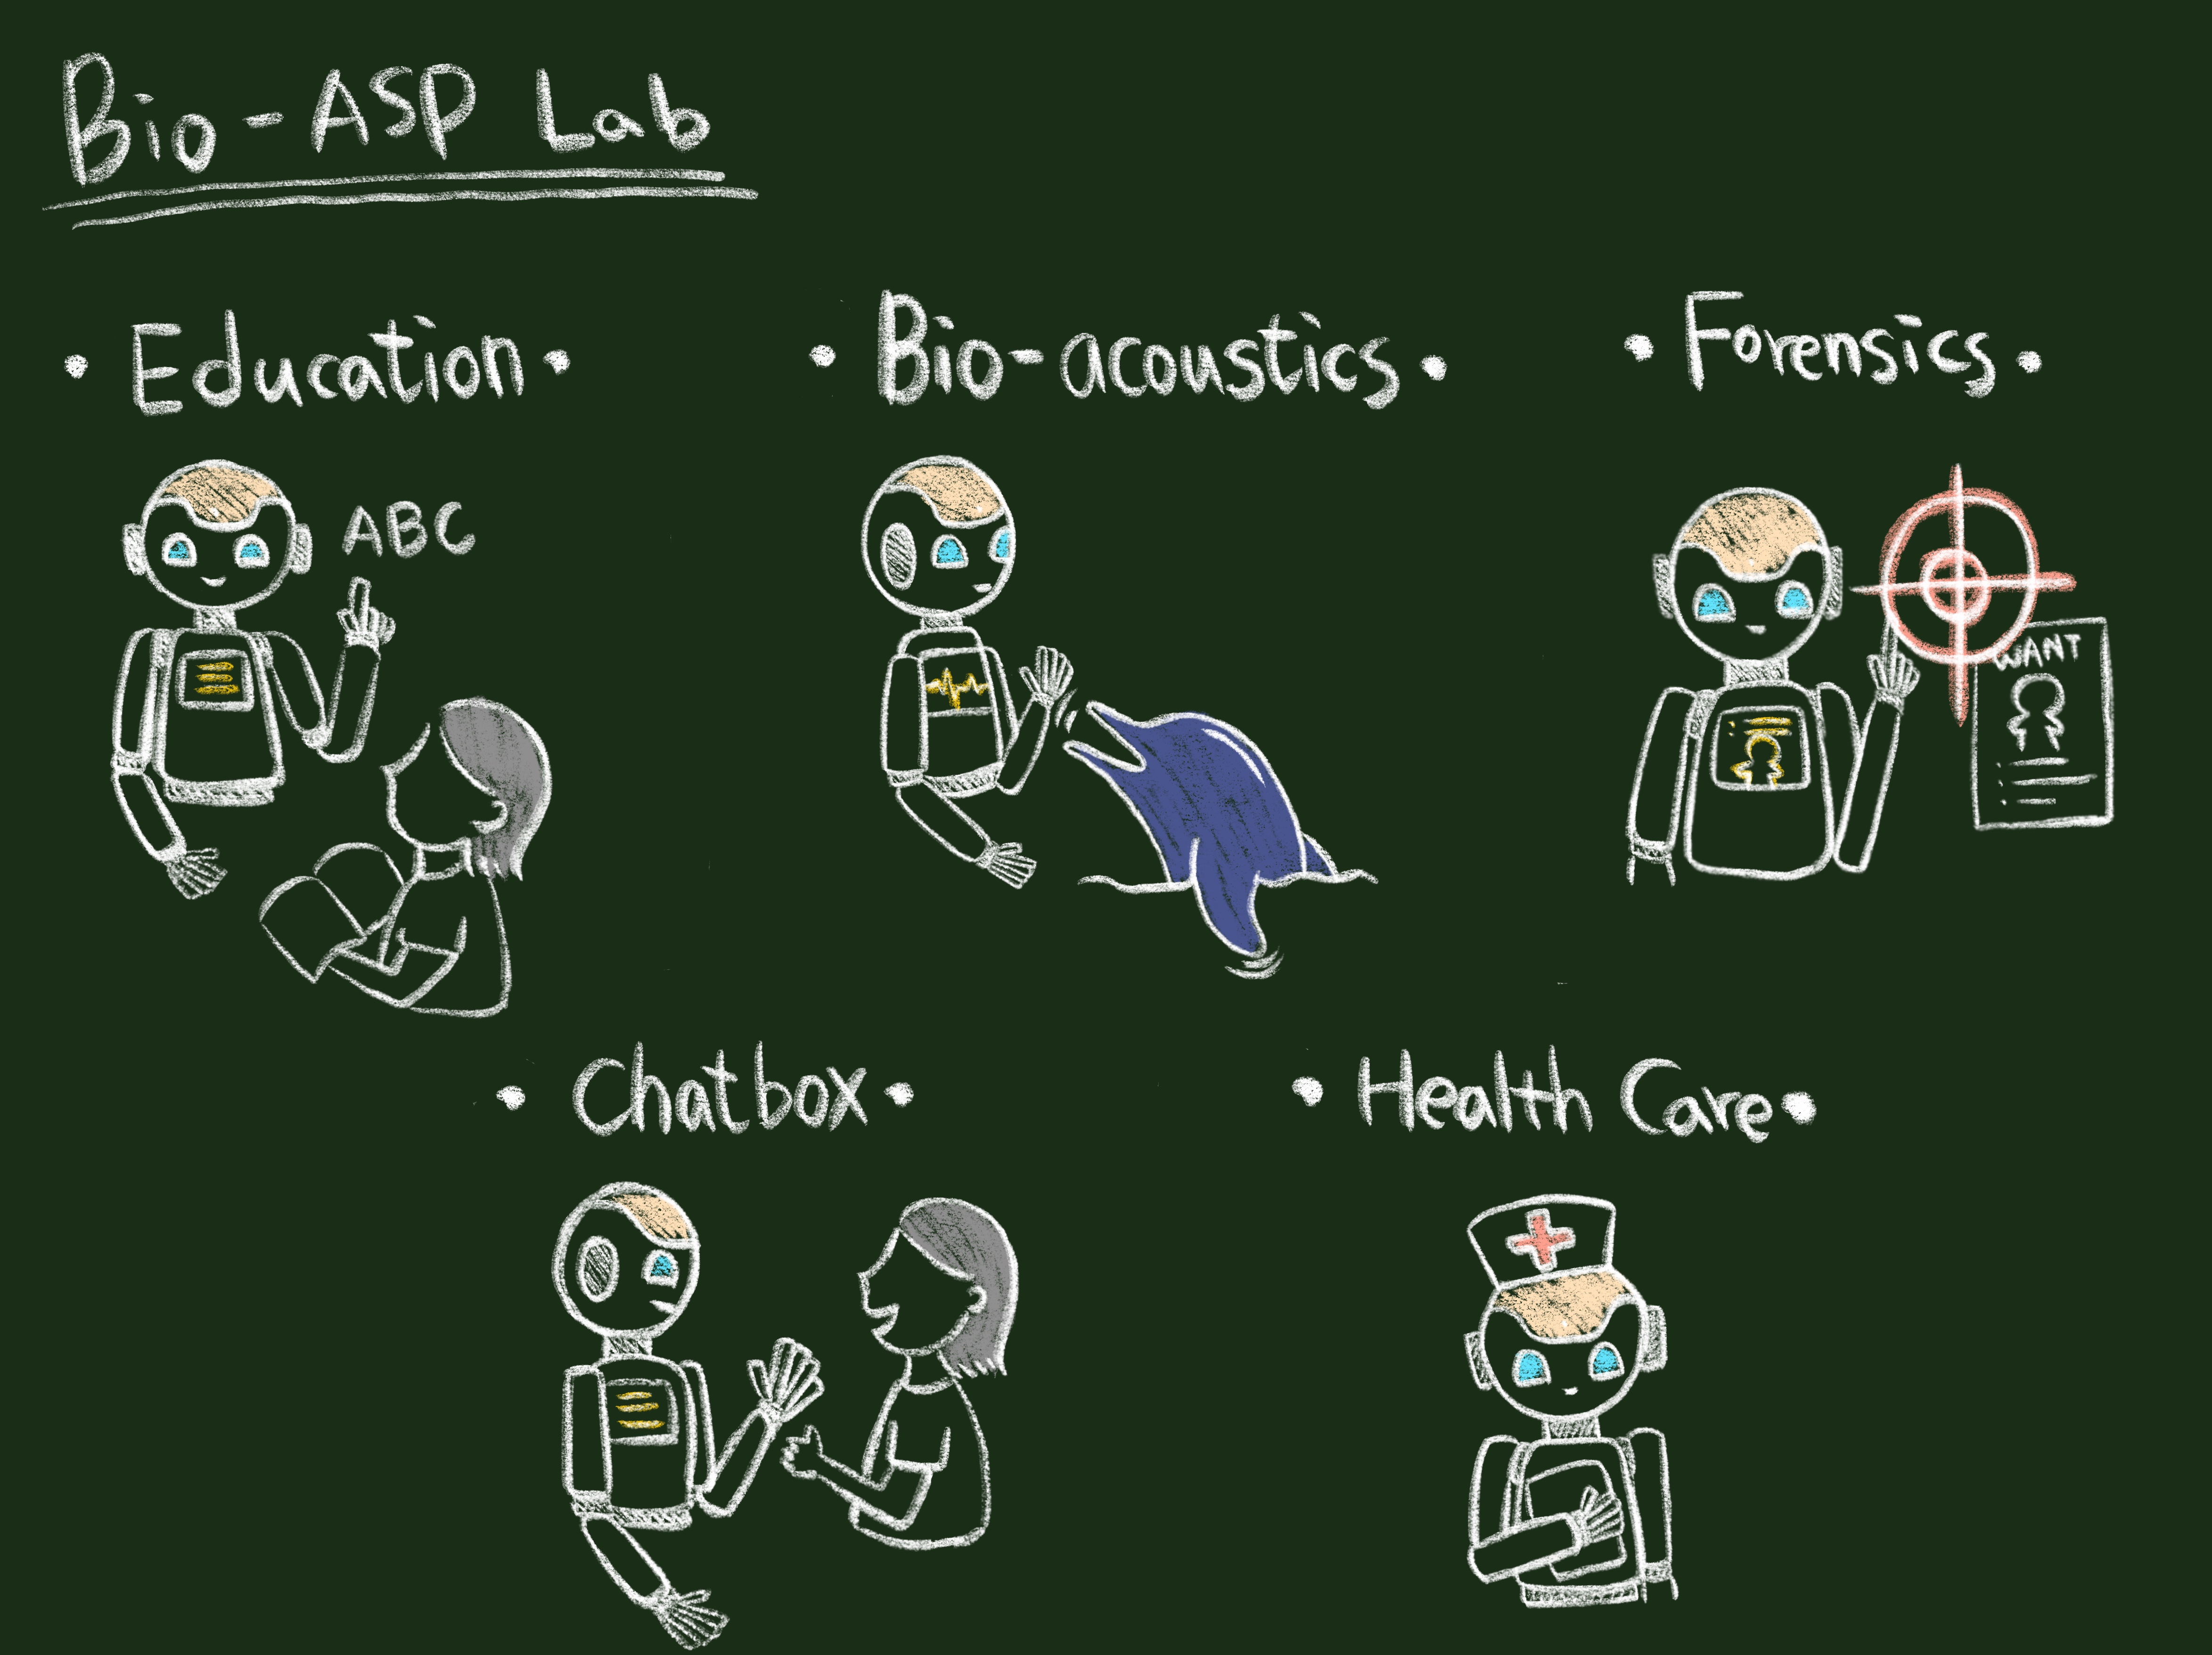 Bio-ASP Lab
• Education •
• Bio-acoustics •
• Forensics •
ABC
WANT
• Chatbox •
• Health Care •